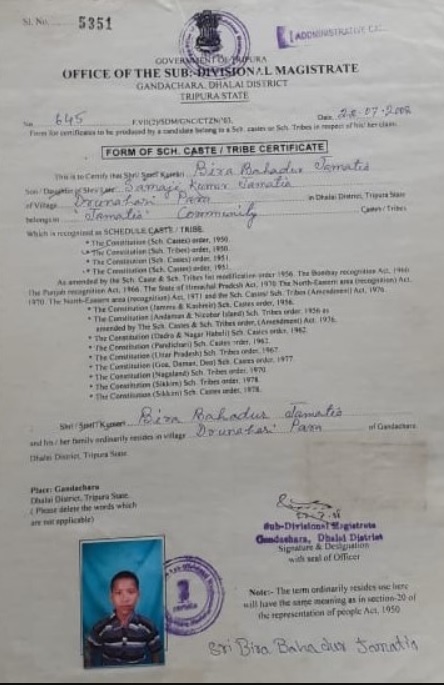 Sl. No. 5351
ADMINISTRATIVE
GOVERNMENT OF TRIPURA
OFFICE OF THE SUB-DIVISIONAL MAGISTRATE
GANDACHARA, DHALAI DISTRICT
TRIPURA STATE
No 645 Date, 2008
Form for certificates to be produced by a candidate belong to a Sch. castes or Sch. Tribes in respect of his/her claim.
FORM OF SCH. CASTE / TRIBE CERTIFICATE
This is to Certify that Shri/ Smt/ Kumari Bira Bahadur Jamatia
Son / Daughter of Shri/ Late Samaji Kumar Jamatia
of Village Drunahari Para in Dhalai District, Tripura State
belongs to 'Jamatia' Community Castes / Tribes
Which is recognised as SCHEDULE CASTE / TRIBE.
* The Constitution (Sch. Castes) order, 1950.
* The Constitution (Sch. Tribes) order, 1950.
* The Constitution (Sch. Castes) order, 1951.
* The Constitution (Sch. Castes) order, 1951.
As amended by the Sch. Caste & Sch. Tribes list modification order 1956. The Bombay recognition Act, 1960
The Punjab recognition Act, 1966. The State of Himachal Pradesh Act, 1970. The North-Eastern area (recognition) Act,
1970. The North-Eastern area (recognition) Act, 1971 and the Sch. Castes/ Sch. Tribes (Amendment) Act, 1976.
* The Constitution (Jammu & Kashmir) Sch. Castes order, 1956.
* The Constitution (Andaman & Nicobar Island) Sch. Tribes order, 1956 as
amended by The Sch. Castes & Sch. Tribes order, (Amendment) Act, 1976.
* The Constitution (Dadra & Nagar Habeli) Sch. Castes order, 1962.
* The Constitution (Pandichari) Sch. Castes order, 1962.
* The Constitution (Uttar Pradesh) Sch. Tribes order, 1967.
* The Constitution (Goa, Daman, Deo) Sch. Castes order, 1977.
* The Constitution (Nagaland) Sch. Tribes order, 1970.
* The Constitution (Sikkim) Sch. Tribes order, 1978.
* The Constitution (Sikkim) Sch. Castes order, 1978.
Shri / Smt/ Kumari Bira Bahadur Jamatia
and his / her family ordinarily resides in village Drunahari Para of Gandachara,
Dhalai District, Tripura State.
Place: Gandachara
Dhalai District, Tripura State.
( Please delete the words which
are not applicable)
Sub-Divisional Magistrate
Gandachara, Dhalai District
Signature & Designation
with seal of Officer
TRIPURA
Note:- The term ordinarily resides use here
will have the same meaning as in section-20 of
the representation of people Act, 1950
Sri Bira Bahadur Jamatia